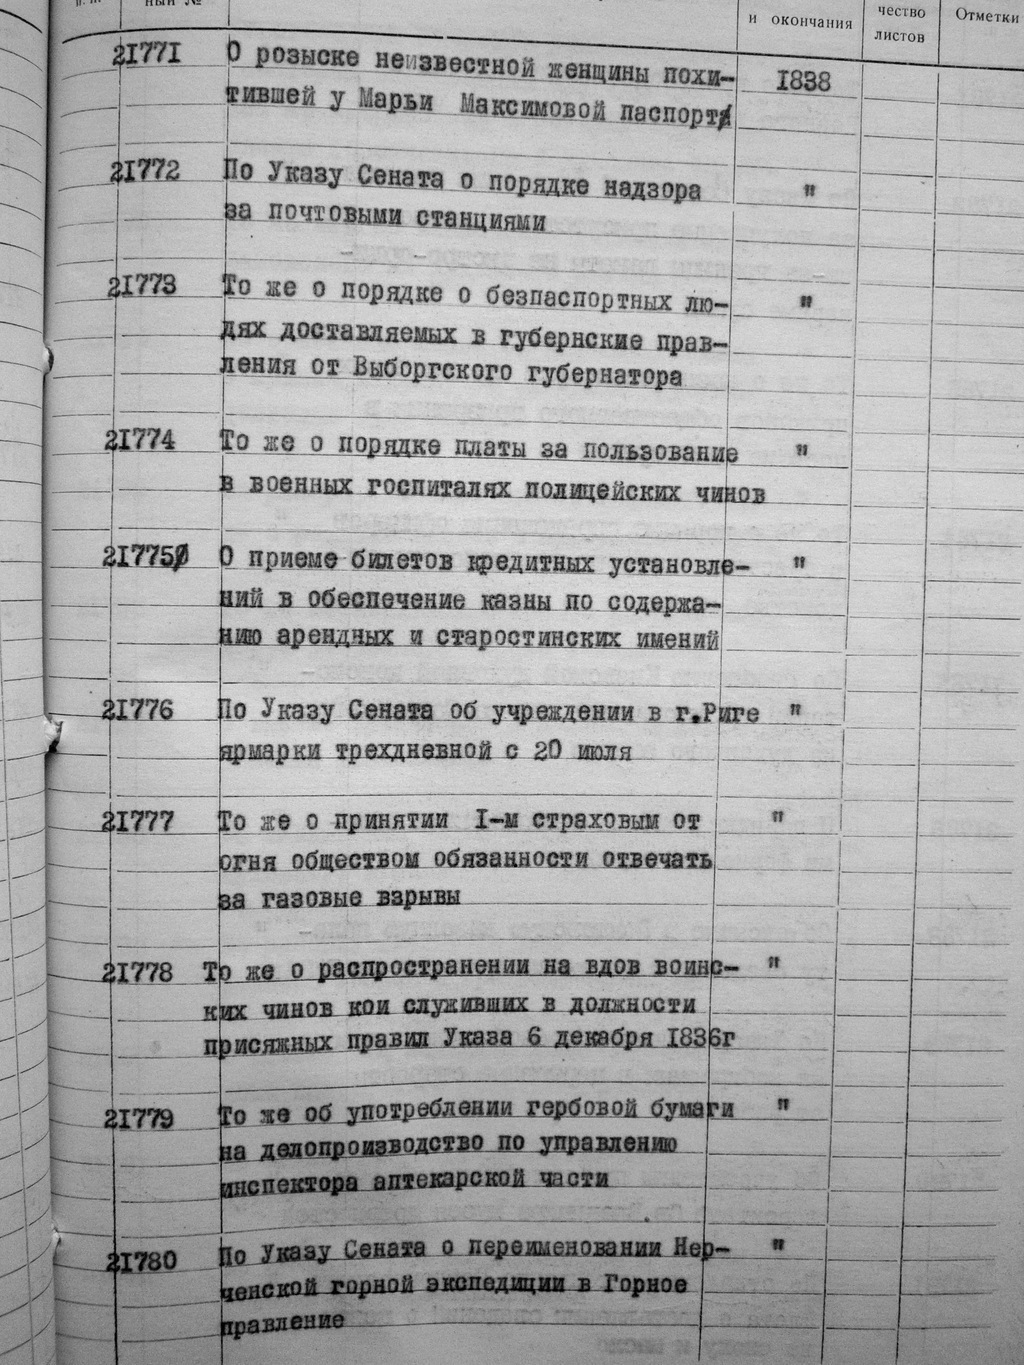 и окончания
чество
листов
Отметки
21771 О розыске неизвестной женщины похи- 1838
тившей у Марьи Максимовой паспорт
21772 По Указу Сената о порядке надзора "
за почтовыми станциями
21773 То же о порядке о безпаспортных лю- "
дях доставляемых в губернские прав-
ления от Выборгского губернатора
21774 То же о порядке платы за пользование "
в военных госпиталях полицейских чинов
21775 О приеме билетов кредитных установле- "
ний в обеспечение казны по содержа-
нию арендных и старостинских имений
21776 По Указу Сената об учреждении в г.Риге "
ярмарки трехдневной с 20 июля
21777 То же о принятии I-м страховым от "
огня обществом обязанности отвечать
за газовые взрывы
21778 То же о распространении на вдов воинс- "
ких чинов кои служивших в должности
присяжных правил Указа 6 декабря 1836г
21779 То же об употреблении гербовой бумаги "
на делопроизводство по управлению
инспектора аптекарской части
21780 По Указу Сената о переименовании Нер- "
ченской горной экспедиции в Горное
правление